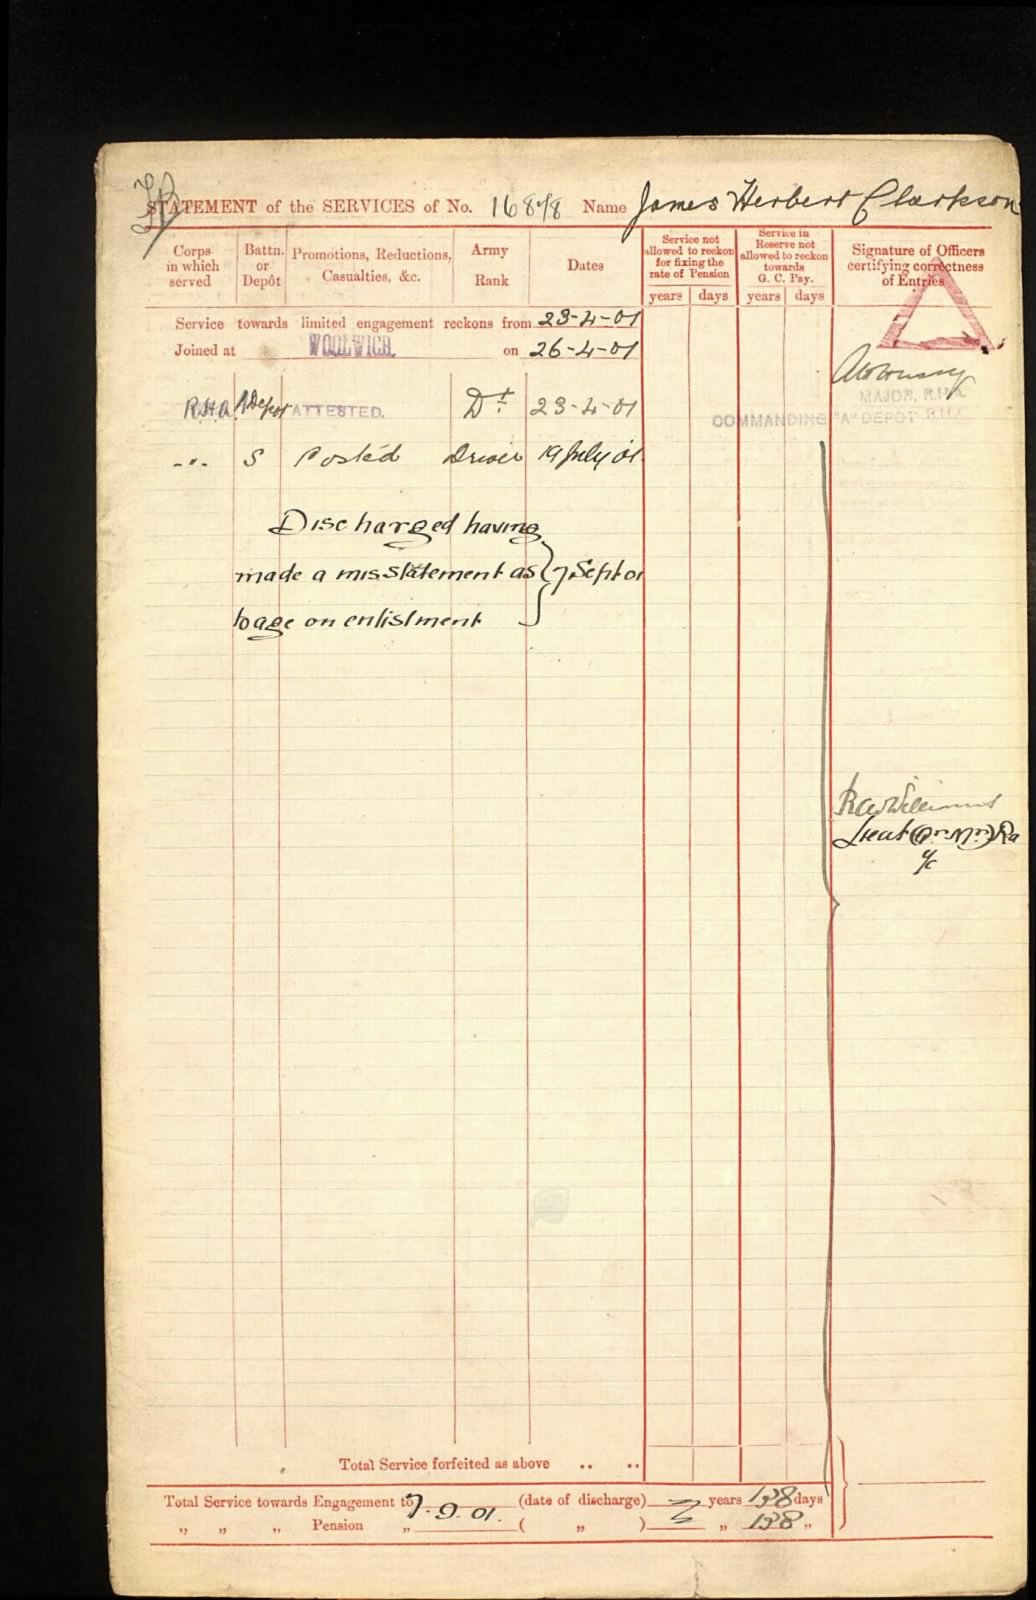 STATEMENT of the SERVICES of No. 16878 Name James Herbert Clarkson
Corps in which served
Battn. or Depôt
Promotions, Reductions, Casualties, &c.
Army Rank
Dates
Service not allowed to reckon for fixing the rate of Pension
years days
Service in Reserve not allowed to reckon towards G. C. Pay.
years days
Signature of Officers certifying correctness of Entries
Service towards limited engagement reckons from 23-4-01
Joined at WOOLWICH. on 26-4-01
R.H.A. Depot ATTESTED. Dr 23-4-01
MAJOR, R.H.A.
COMMANDING "A" DEPOT R.H.A.
-"- S Posted Driver 19 July 01
Discharged having
made a misstatement as } 7 Sept 01
to age on enlistment
RaWilliams
Lieut (Qr. Mr.) Ra
Total Service forfeited as above .. ..
Total Service towards Engagement to 7.9.01. (date of discharge) years 138 days
" " " Pension " ( " ) " 138 "